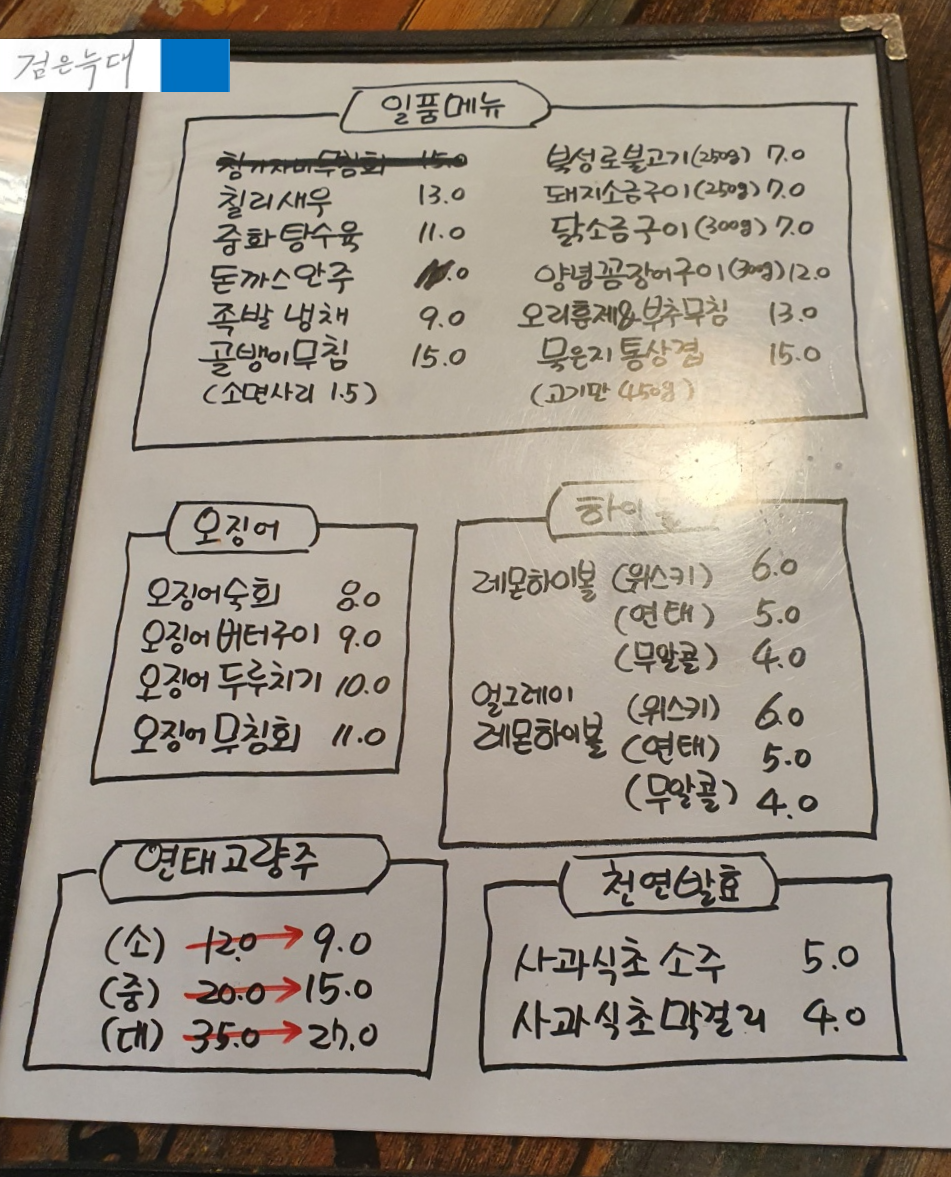 검은늑대
일품메뉴
15.0
칠리새우 13.0
중화탕수육 11.0
돈까스안주 .0
족발냉채 9.0
골뱅이무침 15.0
(소면사리 1.5)
북성로불고기(250g) 7.0
돼지소금구이(250g) 7.0
닭소금구이(300g) 7.0
양념꼼장어구이(300g) 12.0
오리훈제&부추무침 13.0
묵은지통삼겹 15.0
(고기만 450g)
오징어
오징어숙회 8.0
오징어버터구이 9.0
오징어 두루치기 10.0
오징어 무침회 11.0
하이볼
레몬하이볼 (위스키) 6.0
(연태) 5.0
(무알콜) 4.0
얼그레이
레몬하이볼 (위스키) 6.0
(연태) 5.0
(무알콜) 4.0
연태고량주
(소) 12.0 → 9.0
(중) 20.0 → 15.0
(대) 35.0 → 27.0
천연발효
사과식초 소주 5.0
사과식초막걸리 4.0